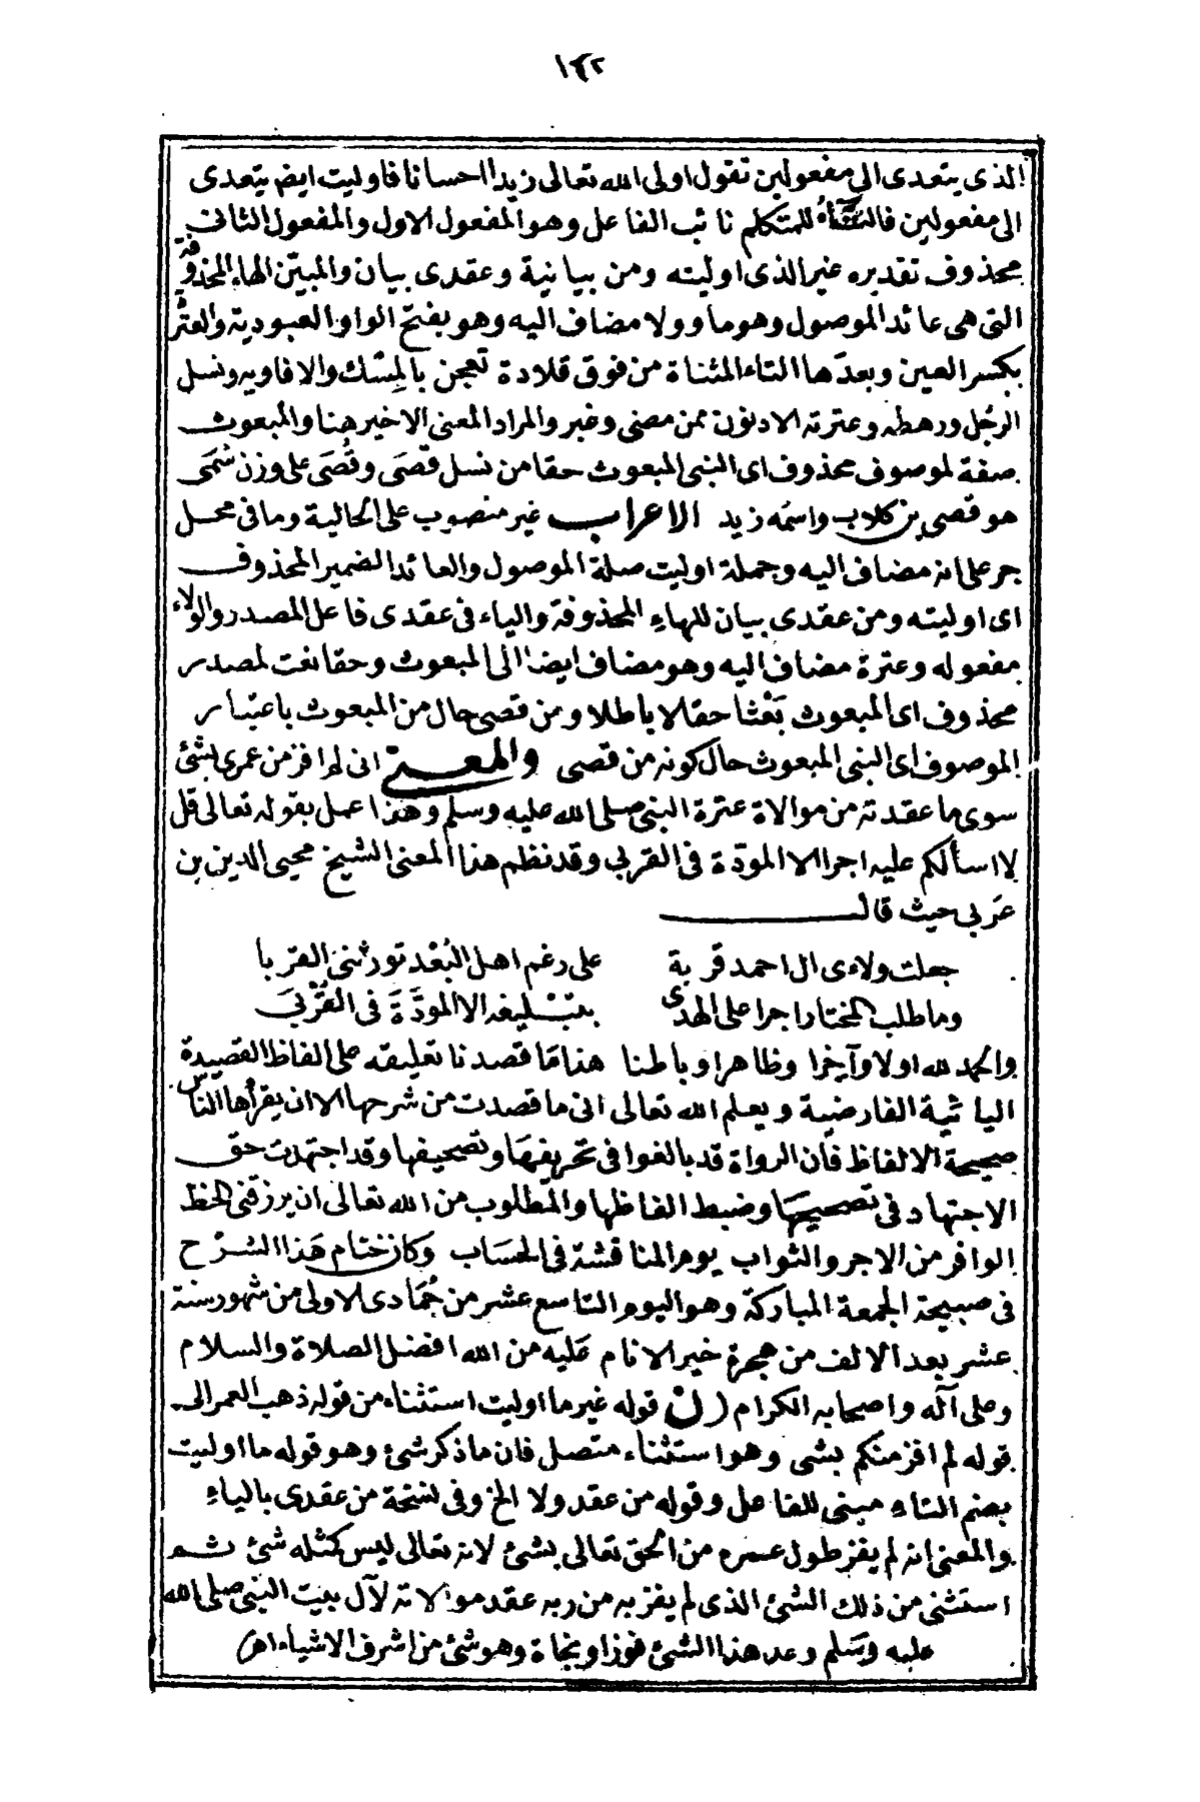 ١٤٢
الذى يتعدى الى مفعولين تقول اولى الله تعالى زيدا احسانا فاوليت ايضا يتعدى
الى مفعولين فالتاء للمتكلم نائب الفاعل وهو المفعول الاول والمفعول الثانى
محذوف تقديره غير الذى اوليته ومن بيانية وعقدى بيان والمبين الهاء المحذوفة
التى هى عائد الموصول وهو ما وولا مضاف اليه وهو بفتح الواو العبودية والعترة
بكسر العين وبعدها التاء المثناة من فوق قلادة تعجن بالمسك والافاويه ونسل
الرجل ورهطه وعترته الادنون ممن مضى وغبر والمراد المعنى الاخير هنا والمبعوث
صفة لموصوف محذوف اى النبى المبعوث حقا من نسل قصى وقصى على وزن سمى
هو قصى بن كلاب واسمه زيد الاعراب غير منصوب على الحالية وما فى محل
جر على انه مضاف اليه وجملة اوليت صلة الموصول والعائد الضمير المحذوف
اى اوليته ومن عقدى بيان للهاء المحذوفة والياء فى عقدى فاعل المصدر والولاء
مفعوله وعترة مضاف اليه وهو مضاف ايضا الى المبعوث وحقا نعت لمصدر
محذوف اى المبعوث بَعْثا حقا لا باطلا ومن قصى حال من المبعوث باعتبار
الموصوف اى النبى المبعوث حال كونه من قصى والمعنى انى لم افز من عمرى بشئ
سوى ما عقدته من موالاة عترة النبى صلى الله عليه وسلم وهذا عمل بقوله تعالى قل
لا اسألكم عليه اجرا الا المودّة فى القربى وقد نظم هذا المعنى الشيخ محيى الدين بن
عربى حيث قال
جعلت ولاءى ال احمد قربة على رغم اهل البُعْد تورثنى القربا
وما طلب المختار اجرا على الهدى بتَبْليغه الا المودَّةَ فى القُرْبَى
والحمد لله اولا وآخرا وظاهرا وباطنا هذا ما قصدنا تعليقه على الفاظ القصيدة
اليائية الفارضية ويعلم الله تعالى انى ما قصدت من شرحها الا ان يقرأها الناس
صحيحة الالفاظ فان الرواة قد بالغوا فى تحريفها وتصحيفها وقد اجتهدت حق
الاجتهاد فى تصحيحها وضبط الفاظها والمطلوب من الله تعالى ان يرزقنى الحظ
الوافر من الاجر والثواب يوم المناقشة فى الحساب وكان ختام هذا الشرح
فى صبيحة الجمعة المباركة وهو اليوم التاسع عشر من جُمَادى الاولى من شهور سنة
عشر بعد الالف من هجرة خير الانام عليه من الله افضل الصلاة والسلام
وعلى آله واصحابه الكرام (ن) قوله غير ما اوليت استثناء من قوله ذهب العمر الى
قوله لم افز منكم بشى وهو استثناء متصل فان ما ذكر شئ وهو قوله ما اوليت
بضم التاء مبنى للفاعل وقوله من عقد ولا الخ وفى نسخة من عقدى بالياء
والمعنى انه لم يفز طول عمره من الحق تعالى بشئ لانه تعالى ليس كمثله شئ ثم
استثنى من ذلك الشئ الذى لم يفز به من ربه عقد موالاته لآل بيت النبى صلى الله
عليه وسلم وعد هذا الشئ فوزا ونجاة وهو شئ من اشرف الاشياء اهـ)